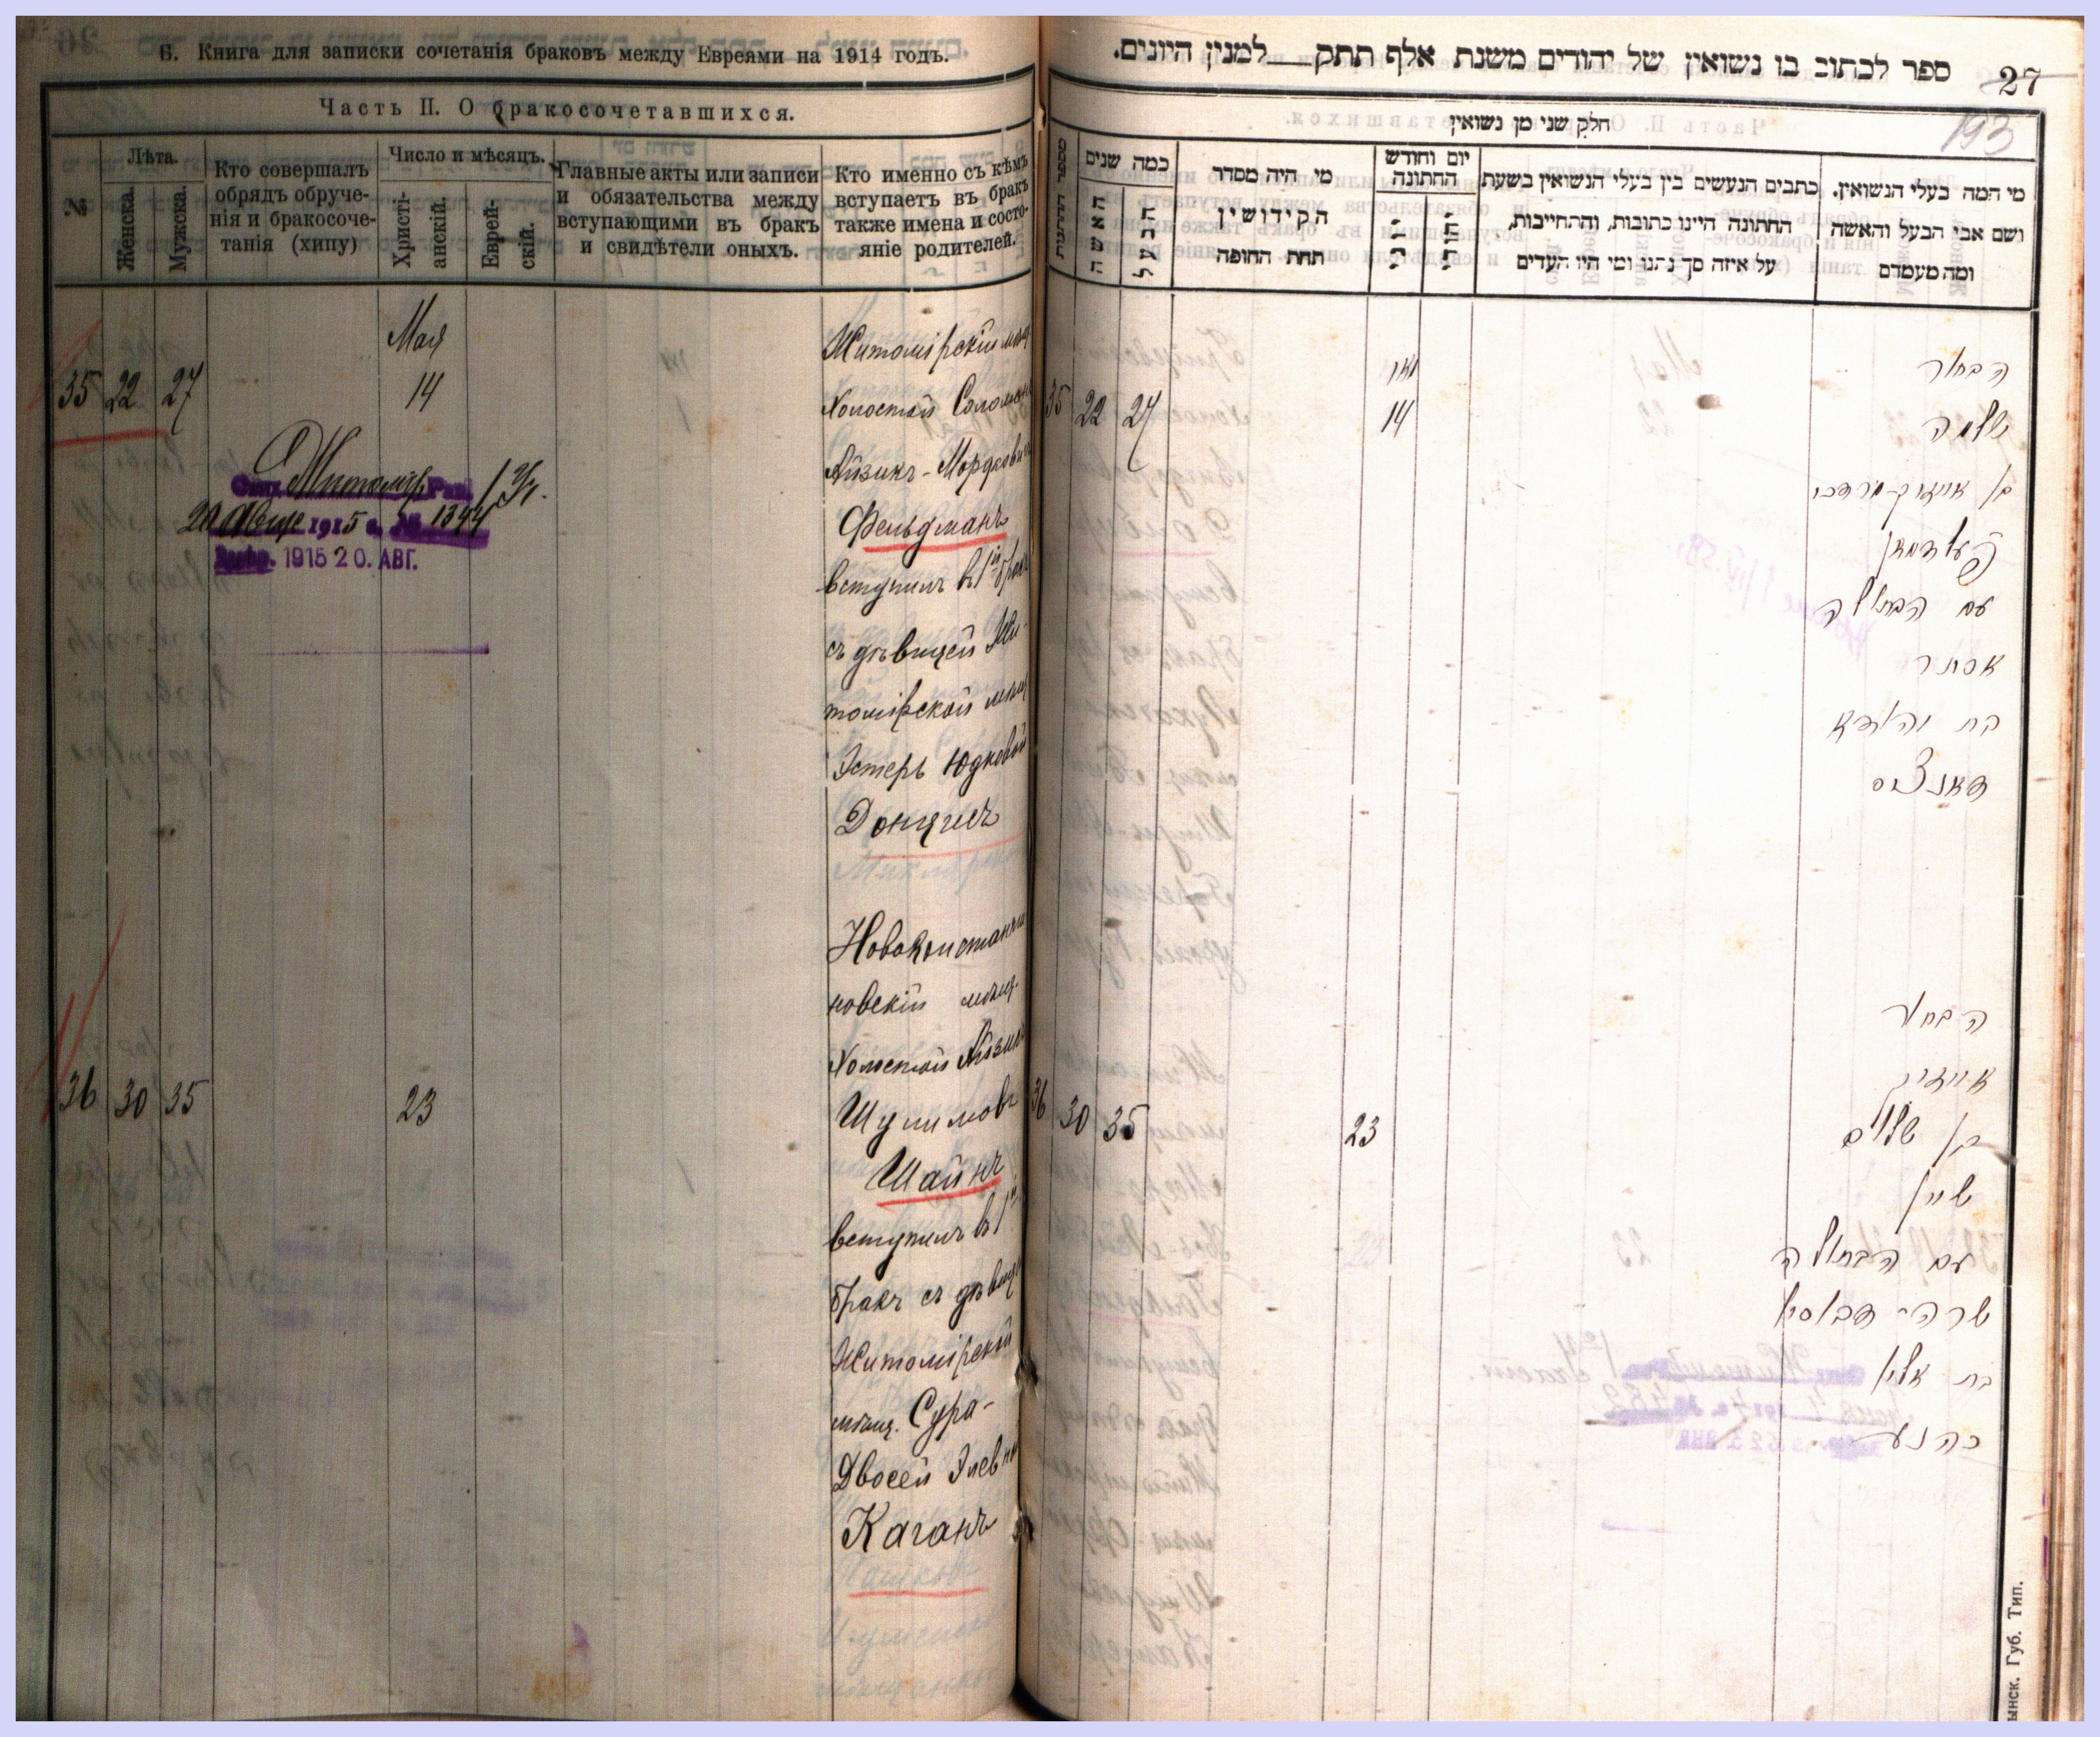 Б. Книга для записки сочетанія браковъ между Евреями на 1914 годъ.
Часть II. О бракосочетавшихся.
№
Лѣта.
Женска.
Мужска.
Кто совершалъ
обрядъ обруче-
нія и бракосоче-
танія (хипу)
Число и мѣсяцъ.
Христі-
анскій.
Еврей-
скій.
Главные акты или записи
и обязательства между
вступающими въ бракъ
и свидѣтели оныхъ.
Кто именно съ кѣмъ
вступаетъ въ бракъ
также имена и состо-
яніе родителей.
35 22 27
Мая
14
Житомірскій мѣщ
Холостой Соломонъ
Айзикъ-Мордковичъ
Фельдманъ
вступилъ въ 1й бракъ
съ дѣвицей Жи-
томірской мѣщ
Эстеръ Юдковой
Донцисъ
Житомір Рав.
20 Авг 1915 г. № 1344
1915 20. АВГ.
36 30 35
23
Новоконстанти
новскій мѣщ.
Холостой Айзикъ
Шулимовъ
Шайнъ
вступилъ въ 1й
бракъ съ дѣвиц
Житомірской
мѣщ. Сура-
Двосей Элевной
Каганъ
ספר לכתוב בו נשואין של יהודים משנת אלף תתק למנין היונים.
27
193
חלק שני מן נשואין
מספר החתנות
כמה שנים
האשה
הבעל
מי היה מסדר
הקידושין
תחת החופה
יום וחודש
החתונה
כתבים הנעשים בין בעלי הנשואין בשעת
החתונה היינו כתובות, והתחייבות,
על איזה סך נהנו ומי היו העדים
מי המה בעלי הנשואין,
ושם אבי הבעל והאשה
ומה מעמדם
35 22 27
מאי
14
הבחור
שלמה
בן אייזיק-מרדכי
פעלדמאן
עם הבתולה
אסתר
בת יהודא
דאנציס
36 30 35
23
הבחור
אייזיק
בן שלום
שיין
עם הבתולה
שרה-דבאסיא
בת אליע
כהנע
ынск. Губ. Тип.